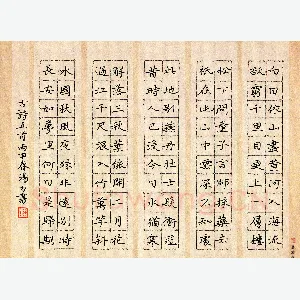 白日依山盡黃河入海流
欲窮千里目更上一層樓
松下問童子言師採藥去
祇在此山中雲深不知處
此地別燕丹壯士髮衝冠
昔時人已沒今日水猶寒
解落三秋葉能開二月花
過江千尺浪入竹萬竿斜
水國秋風夜殊非遠別時
長安如夢裏何日是歸期
古詩五首丙申春